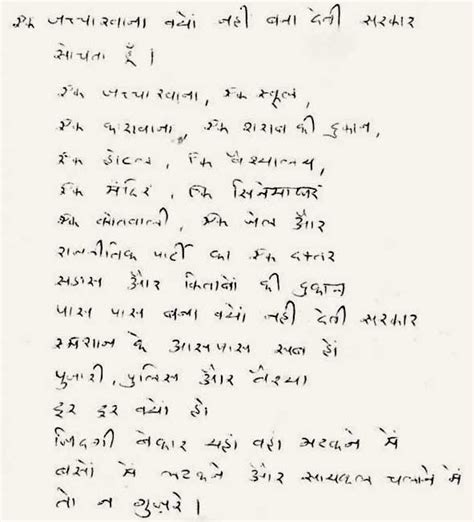 एक जच्चाखाना क्यों नहीं बना देती सरकार
सोचता हूँ।
एक जच्चाखाना, एक स्कूल,
एक कारखाना, एक शराब की दुकान,
एक होटल, एक वैश्यालय,
एक मंदिर, एक सिनेमाघर
एक कोतवाली, एक जेल और
राजनीतिक पार्टी का एक दफ्तर
सडास और किताबों की दुकान
पास पास बना क्यों नहीं देती सरकार
स्मशान के आसपास सब हों
पुजारी, पुलिस और वैश्या
दूर दूर क्यों हो।
जिंदगी बेकार यहां वहां भटकने में
बसों में लटकने और सायकल चलाने में
तो न गुज़रे।